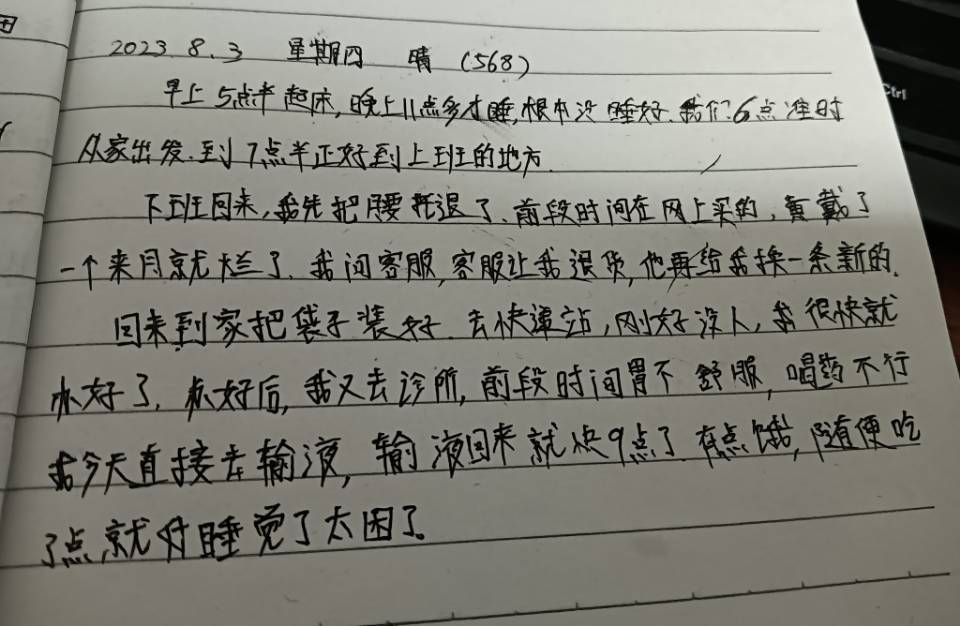 2023.8.3 星期四 晴 (568)
早上5点半起床,晚上11点多才睡,根本没睡好.我们6点准时
从家出发.到7点半正好到上班的地方.
下班回来,我先把腰托退了.前段时间在网上买的,戴了
一个来月就烂了.我问客服,客服让我退货,他再给我换一条新的.
回来到家把袋子装好.去快递站,刚好没人,我很快就
办好了.办好后,我又去诊所,前段时间胃不舒服,喝药不行
我今天直接去输液,输液回来就快9点了.有点饿,随便吃
了点,就睡觉了太困了。
Ctrl